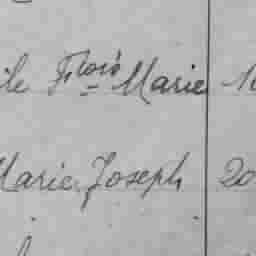 ile Flois Marie 1
Marie Joseph 20